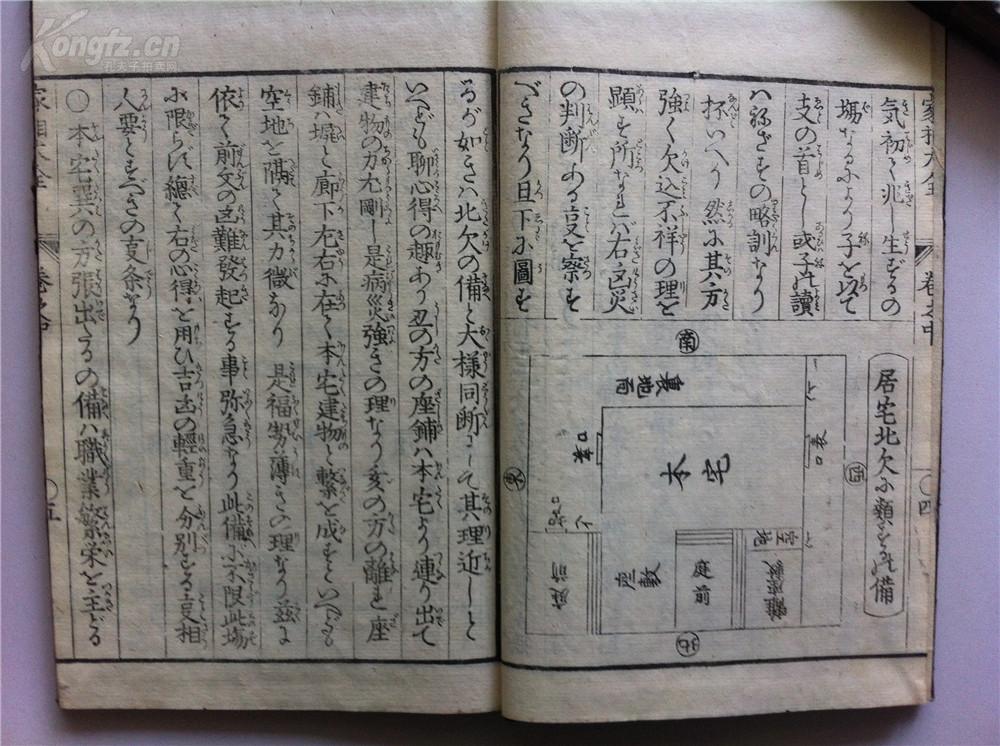 Kongfz.cn
孔夫子拍卖网
家相大全 巻之中 〇四
気初て兆し生ずるの
場なるにより子を以て
支の首とし或子を讀
強く欠込不祥の理を
顕す所なれバ右凶災
の判断ある亥を察す
べきなり且下に圖す
居宅北欠に類する備
南
裏地面
本宅
表口
西
東
北
空地
座敷
庭前
るが如きハ北欠の備と大様同断にて其理近しと
いへども聊心得の趣あり丑の方の座鋪ハ本宅より連り出て
建物の力尤剛し是病災強きの理なり亥の方の離れ座
鋪ハ塀と廊下左右に在て本宅建物と繋を成すといへども
空地を隔て其力微なり 是福勢薄きの理なり茲に
依て前文の凶難發起する事弥急なり此備に不限此場
に限らず總て右の心得を用ひ吉凶の輕重を分別する亥相
人要とすべきの亥条なり
〇本宅巽の方張出たるの備ハ職業繁栄を主どる
家相大全 巻之中 〇五